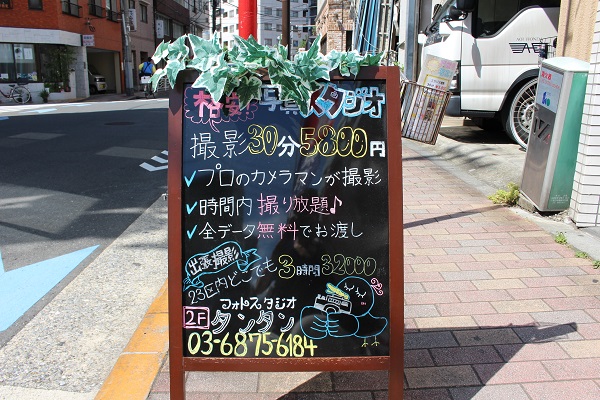 格安写真スタジオ
撮影30分5800円
✓プロのカメラマンが撮影
✓時間内撮り放題♪
✓全データ無料でお渡し
出張撮影
23区内どこでも3時間32000円
フォトスタジオ
2F タンタン
03-6875-6184